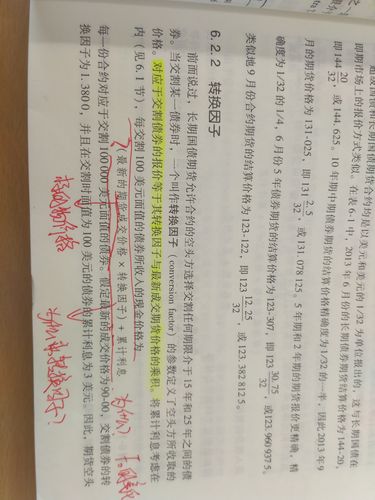 超级国债和长期国债期货合约均是以美元和美元的1/32为单位报出的，这与长期国债在
即期市场上的报价方式类似。在表6-1中，2013年6月份的长期债券期货结算价格为144-20，
即144 20/32，或144.625。10年期中期债券期货的结算价格精确度为1/32的一半，因此2013年9
月的期货价格为131-025，即131 2.5/32，或131.078 125。5年期和2年期的期货报价更精确，精
确度为1/32的1/4，6月份5年债券期货的结算价格为123-307，即123 30.75/32，或123.960 937 5。
类似地9月份合约期货的结算价格为123-122，即123 12.25/32，或123.382 812 5。
6.2.2 转换因子
前面说过，长期国债期货允许合约的空头方选择交割任何期限介于15年和25年之间的债
券。当交割某一债券时，一个叫作转换因子（conversion factor）的参数定义了空头方所收取的
价格。对应于交割债券的报价等于其转换因子与最新成交期货价格的乘积。将累计利息考虑在
内（见6.1节），每交割100美元面值的债券所收入的现金价格为
（最新的期货成交价格×转换因子）+累计利息
每一份合约对应于交割100 000美元面值的债券。假定最新的成交价格为90-00，交割债券的转
换因子为1.380 0，并且在交割时面值为100美元的债券的累计利息为3美元。因此，期货空头
为什么？